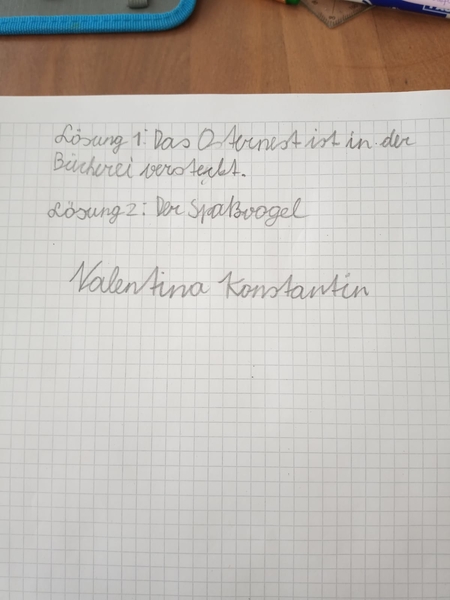 Lösung 1: Das Osternest ist in der
Bücherei versteckt.
Lösung 2: Der Spaßvogel
Valentina Konstantin